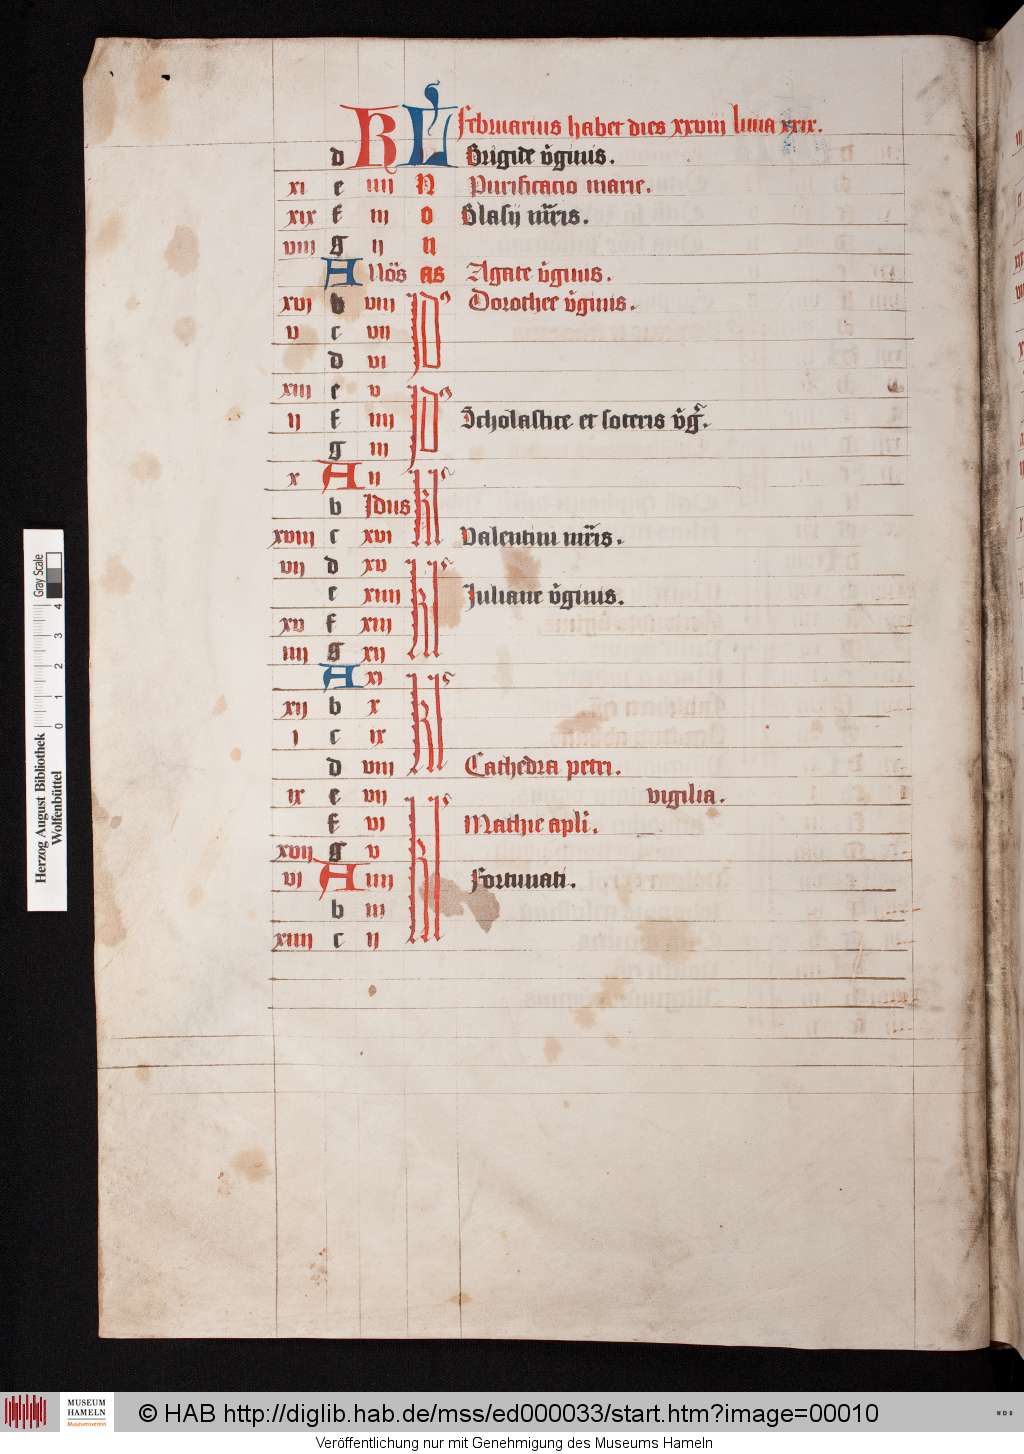 KL Februarius habet dies xxviii luna xxix.
d Brigide v̉ginis.
xi e iiii N Purificatio marie.
xix f iii o Blasij mr̃is.
viii g ii n
A Nōs as Agate v̉ginis.
xvi b viii Id⁹ Dorothee v̉ginis.
v c vii
d vi
xiii e v Id⁹
ii f iiii Scholastice et soteris v̉g̉.
g iii
x A ii kl'
b Idus
xviii c xvi Valentini mr̃is.
vii d xv kl'
e xiiii Juliane v̉ginis.
xv f xiii
iiii g xii
A xi kl'
xii b x
i c ix
d viii Cathedra petri.
ix e vii vigilia.
f vi kl' Mathie apli.
xvii g v
vi A iiii Fortunati.
b iii
xiiii c ii
Gray Scale
0 1 2 3 4
Herzog August Bibliothek
Wolfenbüttel
MUSEUM
HAMELN
Museumsverein
© HAB http://diglib.hab.de/mss/ed000033/start.htm?image=00010
Veröffentlichung nur mit Genehmigung des Museums Hameln